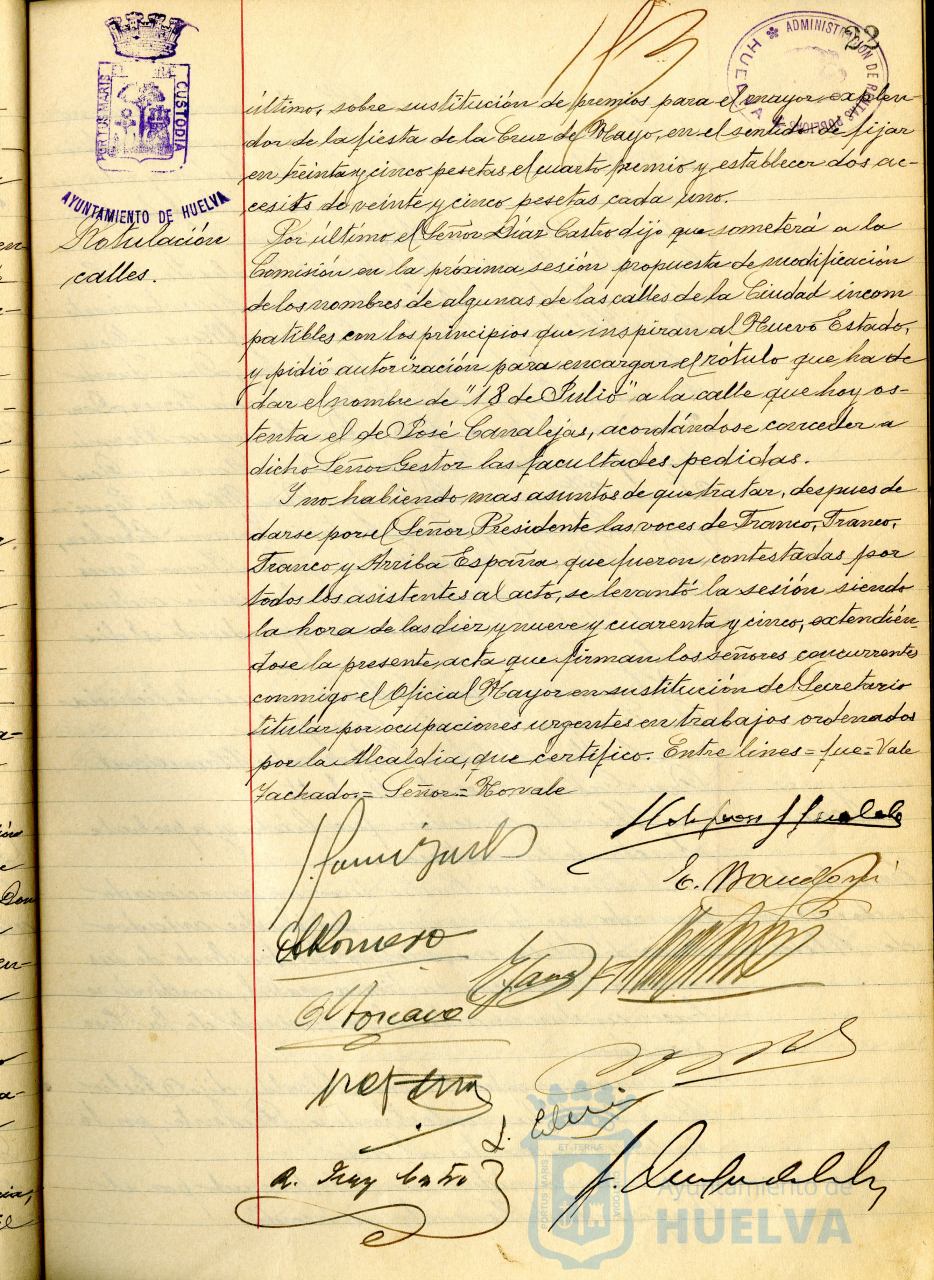 ADMINISTRACIÓN DE RENTAS PÚBLICAS
HUELVA
PORTUS MARIS
CUSTODIA
AYUNTAMIENTO DE HUELVA
Rotulación
calles.
último, sobre sustitución de premios para el mayor explen-
dor de la fiesta de la Cruz de Mayo, en el sentido de fijar
en treinta y cinco pesetas el cuarto premio y establecer dos ac-
cesits de veinte y cinco pesetas cada uno.
Por último el Señor Díaz Castro dijo que someterá a la
Comisión en la próxima sesión propuesta de modificación
de los nombres de algunas de las calles de la Ciudad incom
patibles con los principios que inspiran al Nuevo Estado,
y pidió autorización para encargar el rótulo que ha de
dar el nombre de "18 de Julio" a la calle que hoy os-
tenta el de José Canalejas, acordándose conceder a
dicho Señor Gestor las facultades pedidas.
Y no habiendo mas asuntos de que tratar, despues de
darse por el Señor Presidente las voces de Franco, Franco,
Franco y Arriba España que fueron contestadas por
todos los asistentes al acto, se levantó la sesión siendo
la hora de las diez y nueve y cuarenta y cinco, extendién-
dose la presente acta que firman los señores concurrentes
conmigo el Oficial Mayor en sustitución del Secretario
titular por ocupaciones urgentes en trabajos ordenados
por la Alcaldía, que certifico. Entre lines = fue = Vale
Tachado = Señor = No vale
Romero
ET TERRA
PORTUS MARIS
Ayuntamiento de
HUELVA